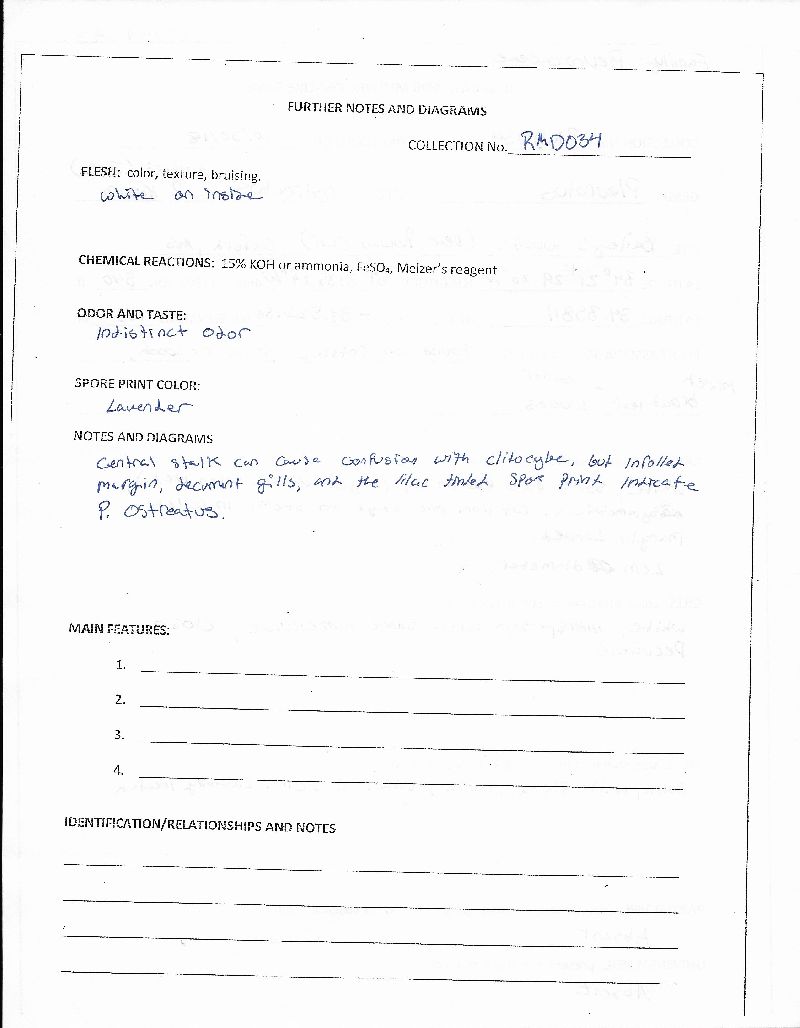 FURTHER NOTES AND DIAGRAMS
COLLECTION No. RMD034
FLESH: color, texture, bruising.
white on inside
CHEMICAL REACTIONS: 15% KOH or ammonia, FeSO₄, Melzer's reagent
ODOR AND TASTE:
Indistinct odor
SPORE PRINT COLOR:
Lavender
NOTES AND DIAGRAMS
Central stalk can cause confusion with clitocybe, but infolled
margin, decurrent gills, and the lilac tinted spore print indicate
P. ostreatus.
MAIN FEATURES:
1.
2.
3.
4.
IDENTIFICATION/RELATIONSHIPS AND NOTES